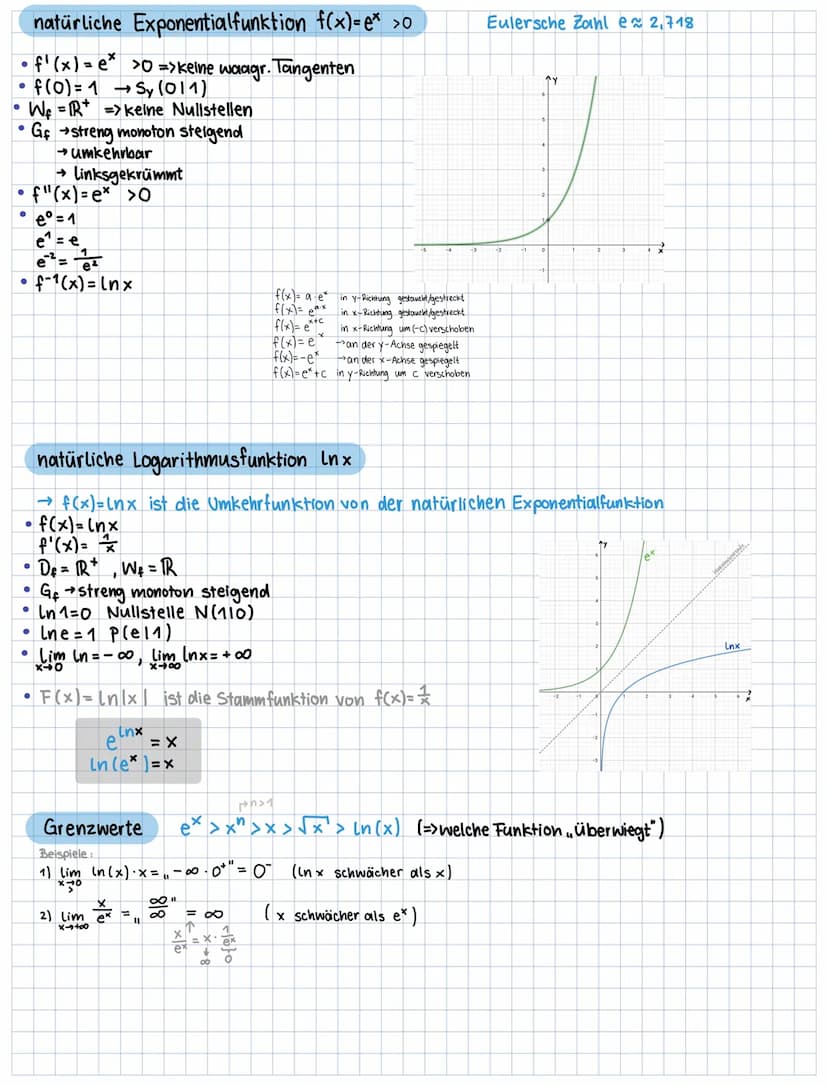 natürliche Exponentialfunktion f(x)=eˣ >0
Eulersche Zahl e ≈ 2,718
• f'(x) = eˣ >0 => keine waagr. Tangenten
• f(0)=1 → Sy (0|1)
• Wf = ℝ⁺ => keine Nullstellen
• Gf → streng monoton steigend
→ umkehrbar
→ linksgekrümmt
• f''(x)=eˣ >0
• e⁰=1
e¹ = e
e⁻² = 1/e²
• f⁻¹(x)= ln x
f(x)= a·eˣ in y-Richtung gestaucht/gestreckt
f(x)= eᵃ·ˣ in x-Richtung gestaucht/gestreckt
f(x)= eˣ⁺ᶜ in x-Richtung um (-c) verschoben
f(x)= e⁻ˣ → an der y-Achse gespiegelt
f(x)=-eˣ → an der x-Achse gespiegelt
f(x)=eˣ+c in y-Richtung um c verschoben
natürliche Logarithmusfunktion ln x
→ f(x)=lnx ist die Umkehrfunktion von der natürlichen Exponentialfunktion
• f(x)= lnx
f'(x)= 1/x
• Df = ℝ⁺ , Wf = ℝ
• Gf → streng monoton steigend
• ln1=0 Nullstelle N(1|0)
• lne = 1 P(e|1)
• lim x→0 ln = -∞, lim x→∞ lnx = +∞
• F(x)= ln|x| ist die Stammfunktion von f(x)= 1/x
eˡⁿˣ = x
ln(eˣ)=x
eˣ
lnx
→n>1
Grenzwerte eˣ > xⁿ > x > √x > ln(x) (=> welche Funktion „überwiegt")
Beispiele:
1) lim x→0 ln(x)·x = „-∞ · 0⁺" = 0⁻ (ln x schwächer als x)
2) lim x→+∞ x/eˣ = „∞/∞" = ∞ (x schwächer als eˣ)
x/eˣ = x · 1/eˣ
∞ 0